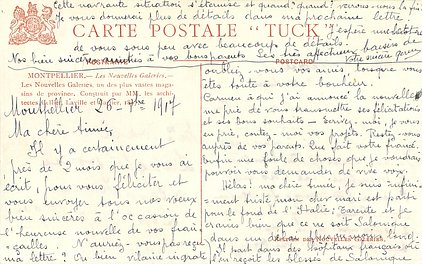 Cette navrante situation s'éternise et quand, quand? verrons-nous la fin
Je vous donnerai plus de détails dans ma prochaine lettre.
CARTE POSTALE "TUCK" J'espère
de vous sous peu avec beaucoup de détails.
Nos bien sincères amitiés à vos bons parents. Les très affectueux baisers de
Votre sincère
POSTCARD
MONTPELLIER.—Les Nouvelles Galeries.—
Les Nouvelles Galeries, un des plus vastes magasins
de province. Construit par MM. les architectes
Montpellier 26 - 9bre 1917
Ma chère Aimée,
Il y a certainement
près de 2 mois que je vous ai
écrit, pour vous féliciter et
vous envoyer tous nos vœux
bien sincères à l'occasion de
l'heureuse nouvelle de vos fian-
çailles. N'auriez-vous pas reçu
ma lettre? Ou bien vilaine ingrate
oubliez-vous vos amis, lorsque vous
êtes toute à votre bonheur.
Carmen à qui j'ai annoncé la nouvelle
me prie de vous transmettre ses félicitations
et ses bons souhaits — Écrivez-moi, je vous
en prie, contez-moi vos projets. Restez-vous
auprès de vos parents. Que fait votre fiancé.
Enfin une foule de choses que je voudrais
pouvoir vous demander de vive voix.
Hélas! ma chère Aimée, je suis infini-
ment triste mon cher mari est parti
pour le fond de l'Italie; Tarente et je
crains bien que ce ne soit Salonique
dans un
LES NOUVELLES GALERIES.
Il part dans des hôpitaux français, où
l'on reçoit les blessés de Salonique